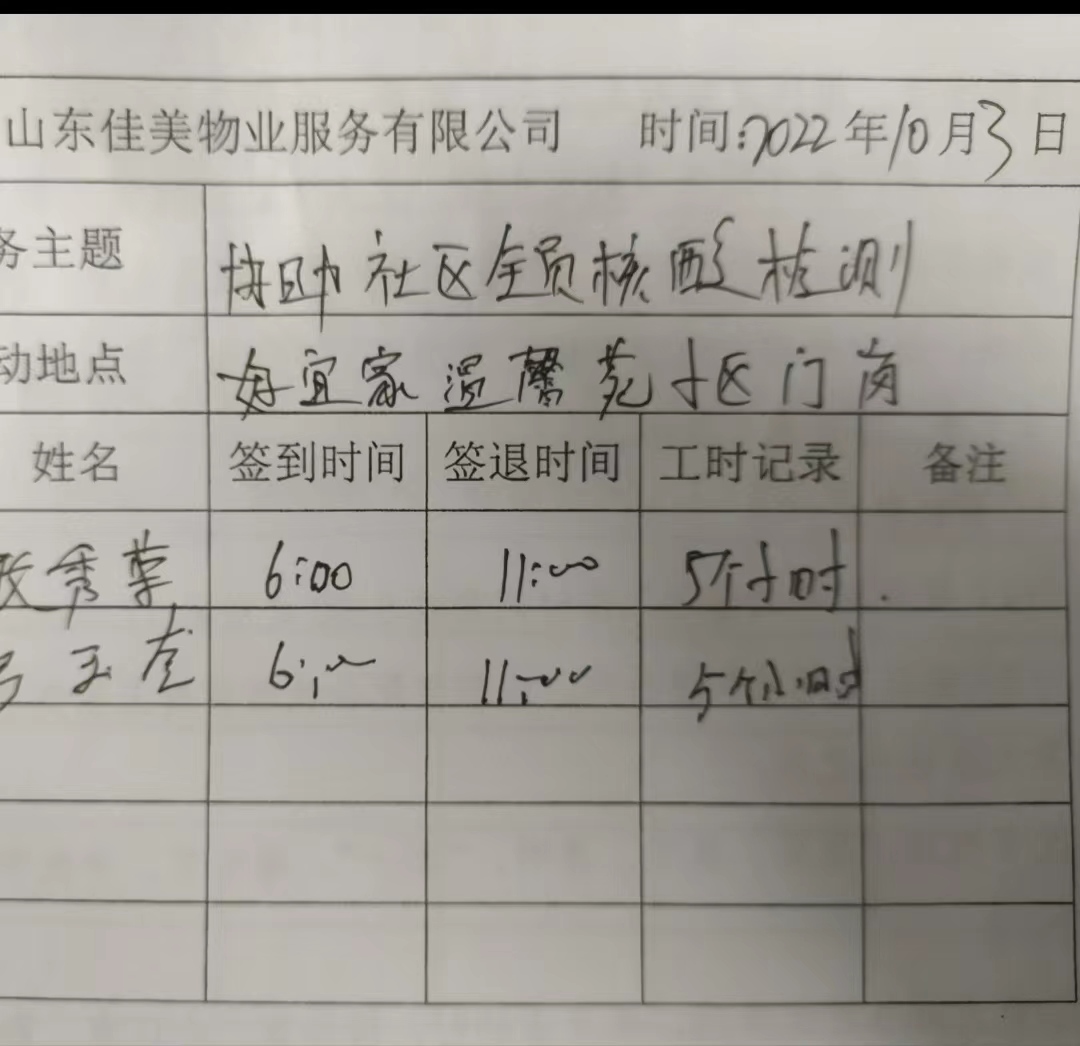 山东佳美物业服务有限公司 时间:2022年10月3日
务主题 协助社区全员核酸检测
动地点 好宜家温馨苑小区门岗
姓名 签到时间 签退时间 工时记录 备注
秀 6:00 11:00 5个小时.
玉 6:00 11:00 5个小时